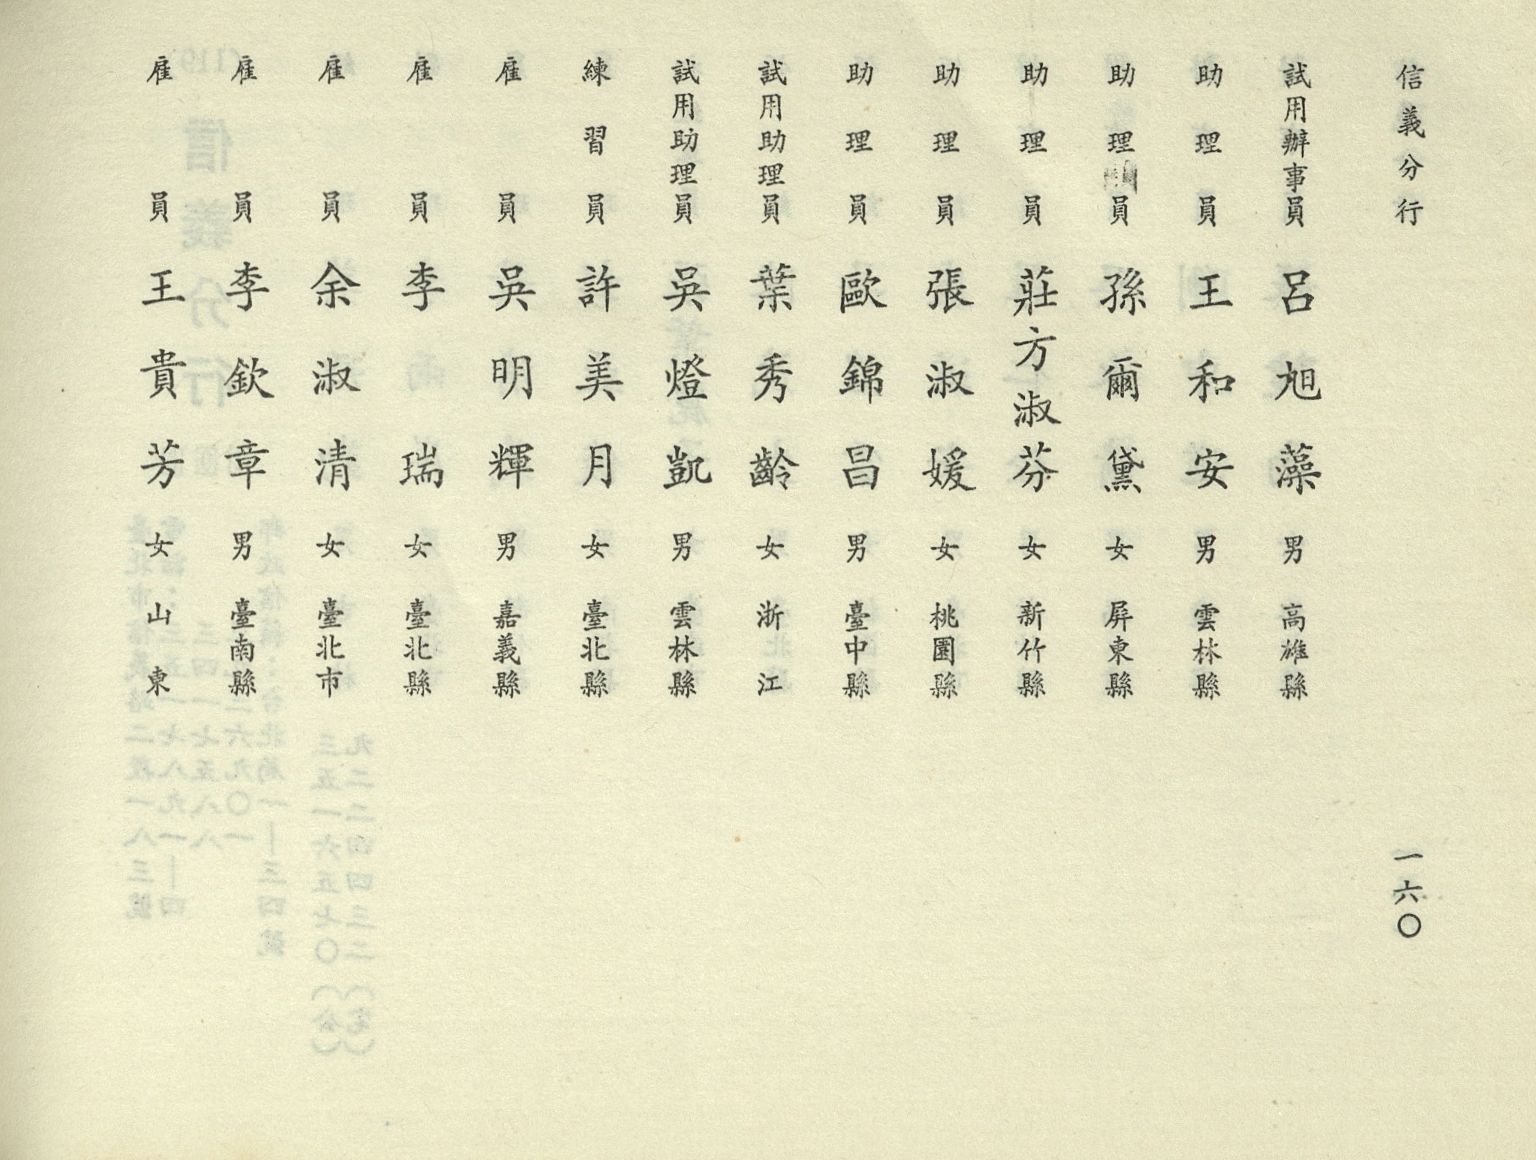 信義分行
試用辦事員 呂旭藻 男 高雄縣
助理員 王和安 男 雲林縣
助理員 孫爾黛 女 屏東縣
助理員 莊方淑芬 女 新竹縣
助理員 張淑媛 女 桃園縣
助理員 歐錦昌 男 臺中縣
試用助理員 葉秀齡 女 浙江
試用助理員 吳燈凱 男 雲林縣
練習員 許美月 女 臺北縣
雇員 吳明輝 男 嘉義縣
雇員 李瑞 女 臺北縣
雇員 余淑清 女 臺北市
雇員 李欽章 男 臺南縣
雇員 王貴芳 女 山東
一六〇